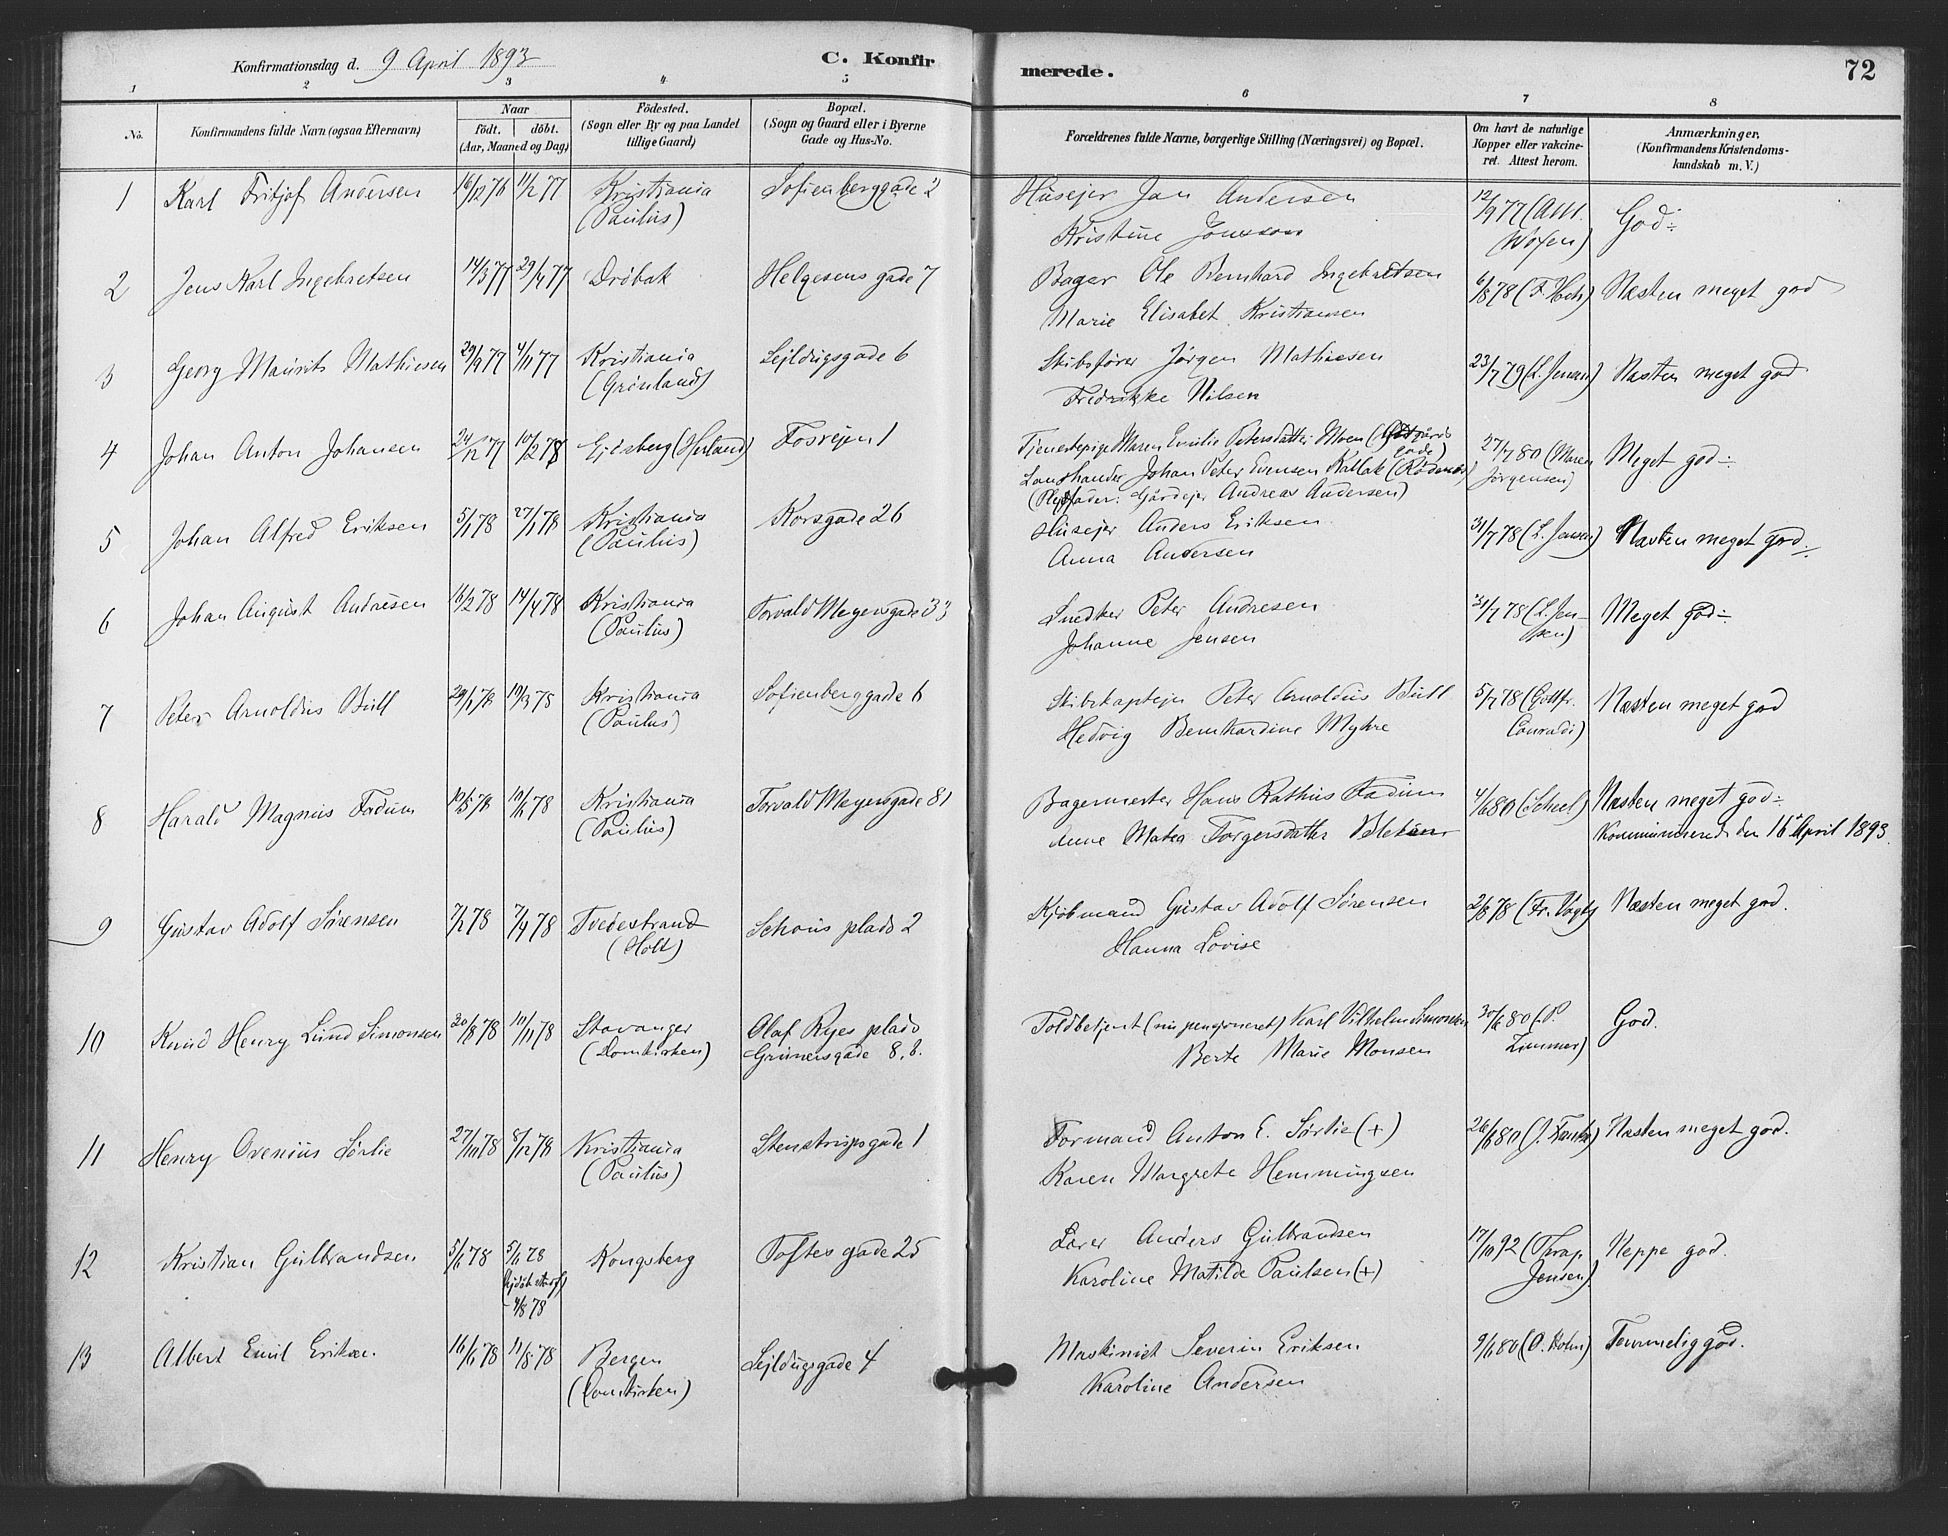 Konfirmationsdag d. 9 April 1893
C. Konfirmerede.
72
1 2 3 4 5 6 7 8
No. Konfirmandens fulde Navn (ogsaa Efternavn) Naar født. døbt. (Aar, Maaned og Dag) Födested. (Sogn eller By og paa Landet tillige Gaard) Bopæl. (Sogn og Gaard eller i Byerne Gade og Hus-No. Forældrenes fulde Navne, borgerlige Stilling (Næringsvei) og Bopæl. Om havt de naturlige Kopper eller vakcineret. Attest herom. Anmærkninger. (Konfirmandens Kristendomskundskab m. V.)
1 Karl Fritjof Andersen 16/12 76 11/2 77 Kristiania Sofienberggade 2 Husejer Jan Andersen 12/9 77 (AM. God÷
(Paulus) Kristine Jonsson
2 Jens Karl Ingebretsen 14/3 77 29/4 77 Drøbak Helgesens gade 7 Bager Ole Bernhard Ingebretsen 6/8 78 Næsten meget god
Marie Elisabet Kristiansen
3 Georg Maurits Mathiesen 29/9 77 4/11 77 Kristiania Sejldugsgade 6 Skibsfører Jørgen Mathiesen 23/7 79 (L. Jensen) Næsten meget god
(Grønland) Fredrikke Nilsen
4 Johan Anton Johansen 24/12 77 10/2 78 Ejdsberg (Herland) Fosvejen 1 Tjenestepige Maren Emilie Petersdatter Moen 27/7 80 (Maren Jørgensen) Meget god÷
Landhandler Johan Peter Evensen Kallak (Rødenes)
(Plejefader: Gårdejer Andreas Andersen)
5 Johan Alfred Eriksen 5/1 78 27/1 78 Kristiania Korsgade 26 Husejer Anders Eriksen 31/7 78 (L. Jensen) Næsten meget god÷
(Paulus) Anna Andersen
6 Johan August Andresen 16/2 78 14/4 78 Kristiania Torvald Meyersgade 33 Snedker Peter Andresen 31/7 78 (L. Jensen) Meget god÷
(Paulus) Johanne Jensen
7 Peter Arnoldus Bull 29/1 78 10/3 78 Kristiania Sofienberggade 6 Skibskaptejn Peter Arnoldus Bull 5/7 78 (Gottfr. Conradi) Næsten meget god
(Paulus) Hedvig Bernhardine Myhre
8 Harald Magnus Fadum 10/5 78 Kristiania Torvald Meyersgade 81 Bagermester Hans Rathus Fadum 4/6 80 (Scheel) Næsten meget god÷
(Paulus) Anne Matea Torgersdatter Kommuniserede den 16 April 1893
9 Gustav Adolf Sørensen 7/2 78 7/4 78 Tvedestrand Schous plads 2 Kjøbmand Gustav Adolf Sørensen 2/8 78 (Fr. Vogt) Næsten meget god.
(Holt) Hanna Lovise
10 Knud Henry Lund Simonsen 30/8 78 10/11 78 Stavanger Olaf Ryes plads Toldbetjent (nu pensjoneret) Karl Vilhelm Simonsen 30/6 80 (P. God.
(Domkirken) Grünersgade 8.b. Berte Marie Monsen
11 Henry Ovenius Sørlie 27/10 78 8/12 78 Kristiania Stenstrupsgade 1 Formand Anton E. Sørlie (+) 26/6 80 Næsten meget god.
(Paulus) Karen Margrete Hemmingsen
12 Kristian Gulbrandsen 5/6 78 5/6 78 Kongsberg Toftes gade 25 Lærer Anders Gulbrandsen 17/10 92 (Thrap Jensen) Neppe god.
4/8 78 Karoline Matilde Paulsen (+)
13 Albert Emil Eriksen. 16/6 78 11/8 78 Bergen Sejldugsgade 4 Maskinist Severin Eriksen 9/6 80 (O. Holm) Temmelig god.
(Domkirken) Karoline Andersen